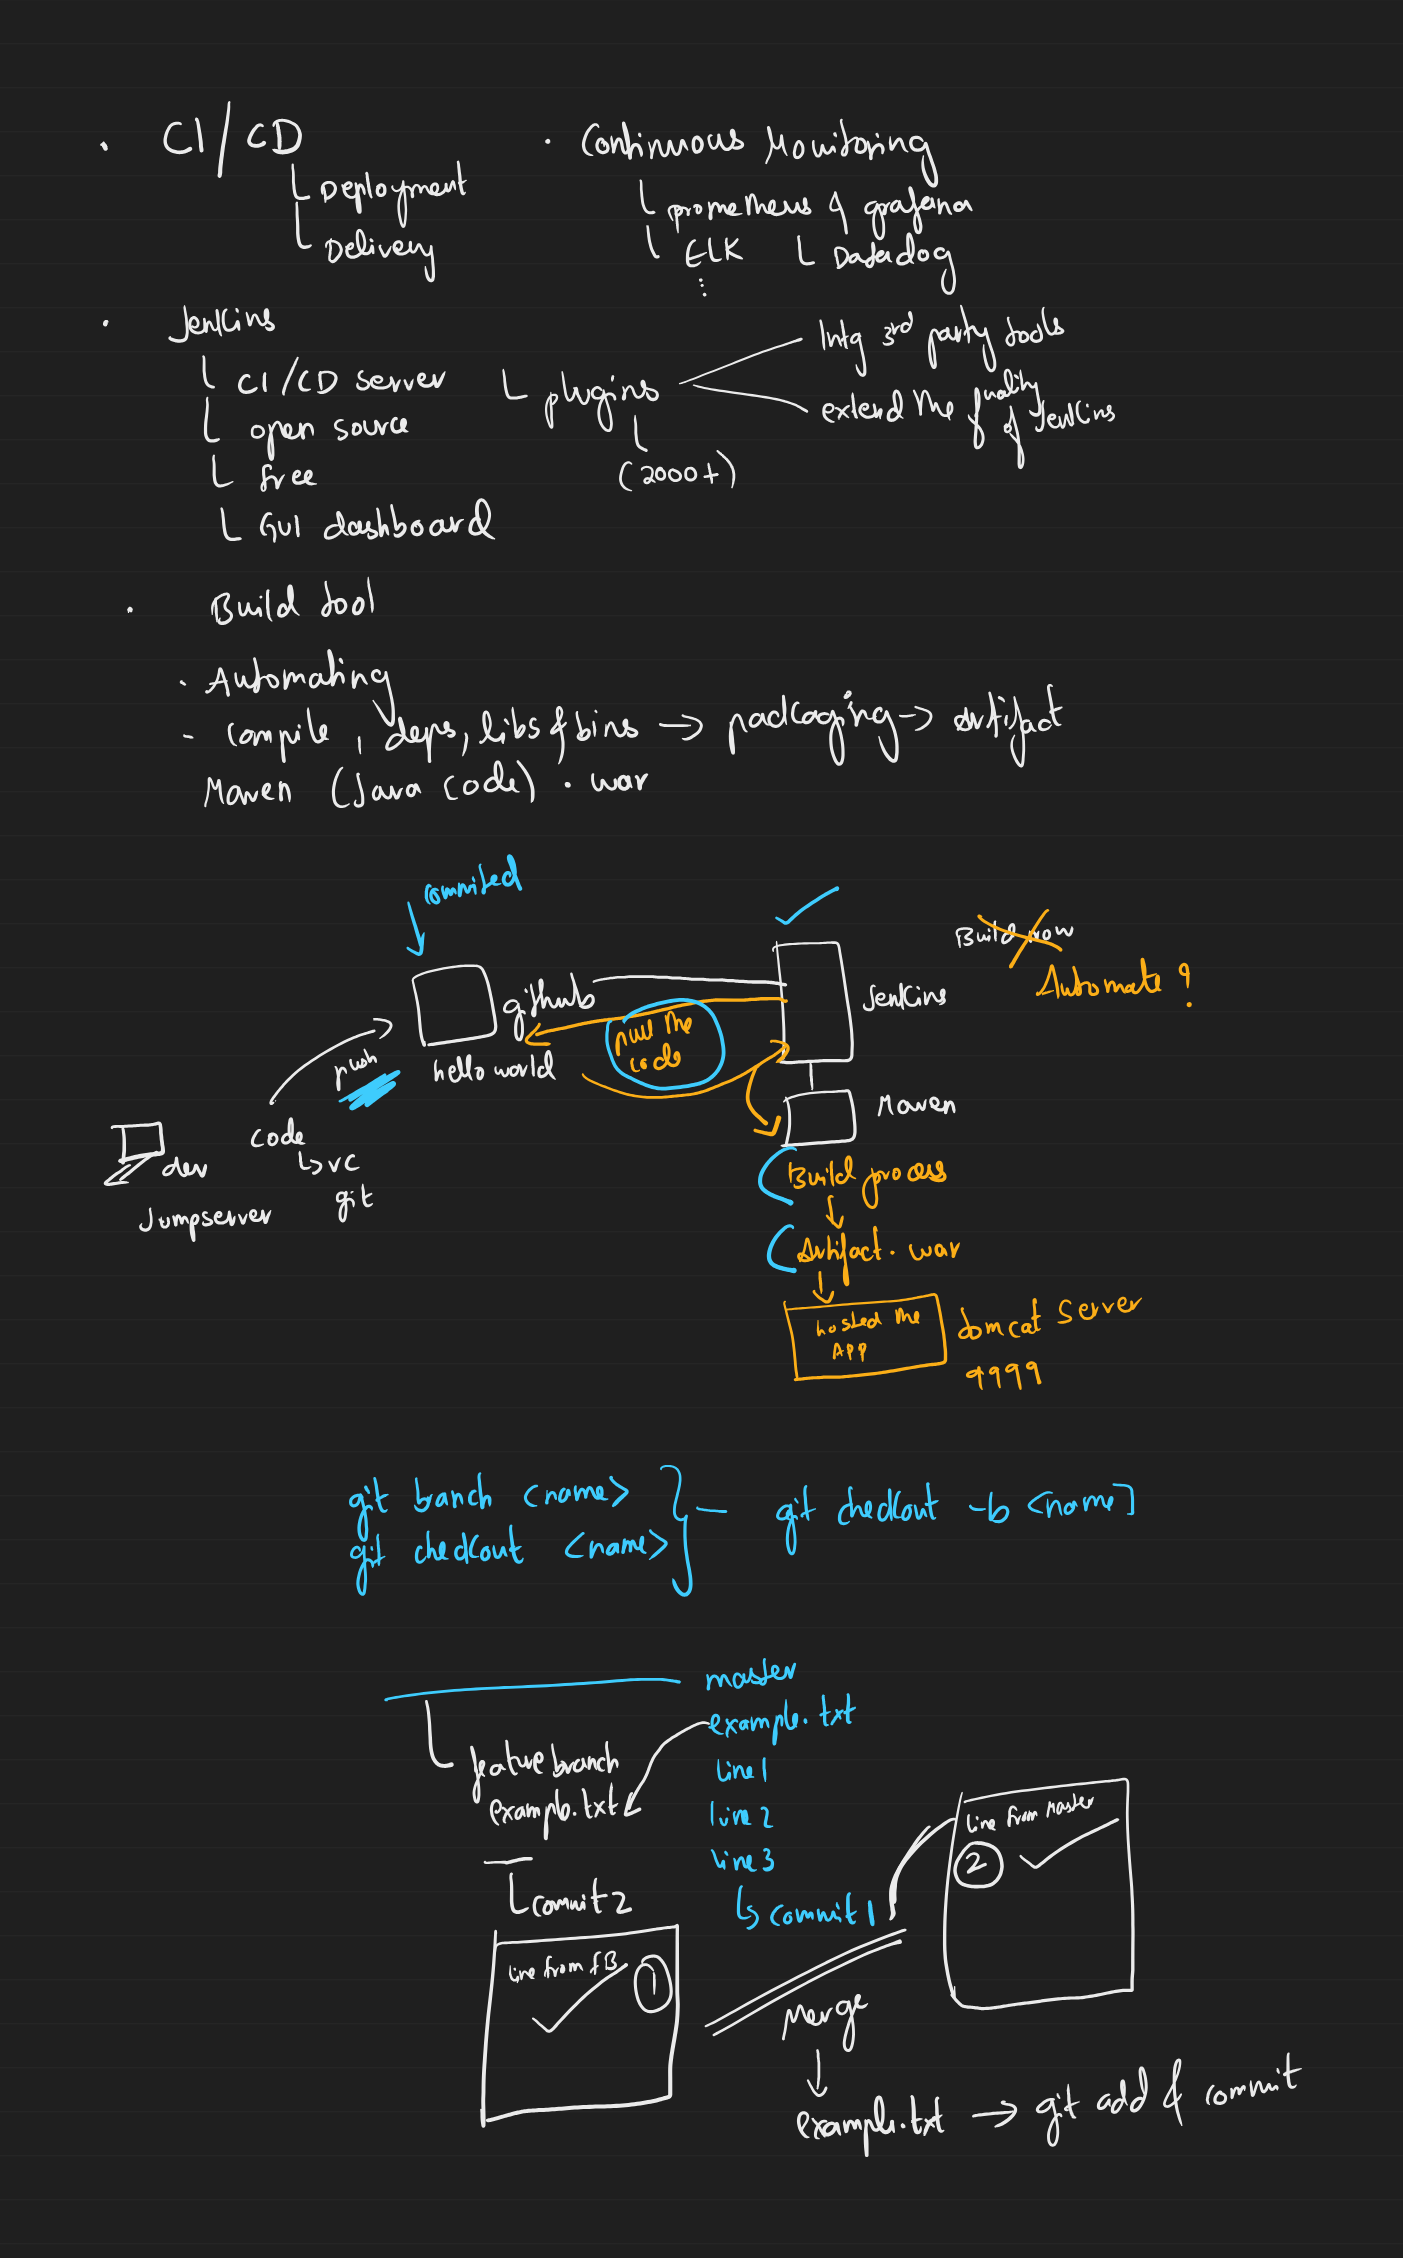 · CI/CD
Deployment
Delivery
· Continuous Monitoring
prometheus & grafana
ELK
Datadog
⋮
· Jenkins
CI/CD server
open source
free
GUI dashboard
plugins
(2000+)
Intg 3rd party tools
extend the
of Jenkins
· Build tool
· Automating
- compile, deps, libs & bins → packaging → artifact
Maven (Java code) .war
commited
github
hello world
push
code
↳ vc
git
dev
Jumpserver
pull the
code
Jenkins
Build now
Automate?
Maven
Build process
Artifact.war
hosted the
APP
tomcat server
9999
git branch <name>
git checkout <name>
} — git checkout -b <name]
master
example.txt
line1
line2
line3
↳ commit1
feature branch
example.txt
commit2
line from fB
1
line from Master
2
Merge
example.txt → git add & commit